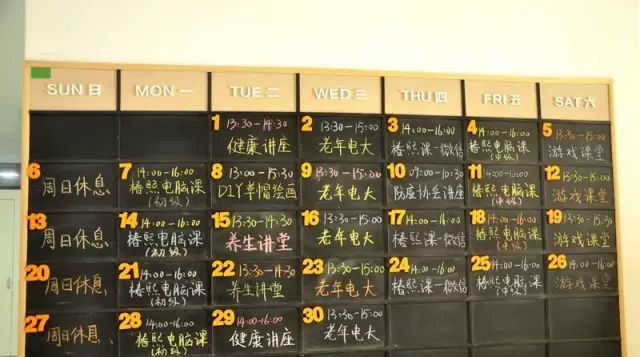 SUN 日 MON 一 TUE 二 WED 三 THU 四 FRI 五 SAT 六
1 13:30-14:30 2 13:30-15:00 3 14:00-16:00 4 14:00-16:00 5 13:30-15:00
健康讲座 老年电大 椿熙课-微信 椿熙电脑课 游戏课堂
(中级)
6 7 14:00-16:00 8 13:00-15:00 9 13:30-15:00 10 09:00-10:30 11 14:00-16:00 12 13:30-15:00
周日休息 椿熙电脑课 DIY草帽绘画 老年电大 讲座 椿熙电脑课 游戏课堂
(初级) (中级)
13 14 14:00-16:00 15 13:30-14:30 16 13:30-15:00 17 14:00-16:00 18 14:00-16:00 19 13:30-15:00
周日休息 椿熙电脑课 养生讲堂 老年电大 椿熙课-微信 椿熙电脑课 游戏课堂
(初级) (中级)
20 21 14:00-16:00 22 13:30-14:30 23 13:30-15:00 24 14:00-16:00 25 14:00-16:00 26 14:00-16:00
周日休息 椿熙电脑课 养生讲堂 老年电大 椿熙课-微信 椿熙电脑课 游戏课堂
(初级) (中级)
27 28 14:00-16:00 29 14:00-16:00 30 13:30-15:00
周日休息 椿熙电脑课 健康讲座 老年电大
(初级)